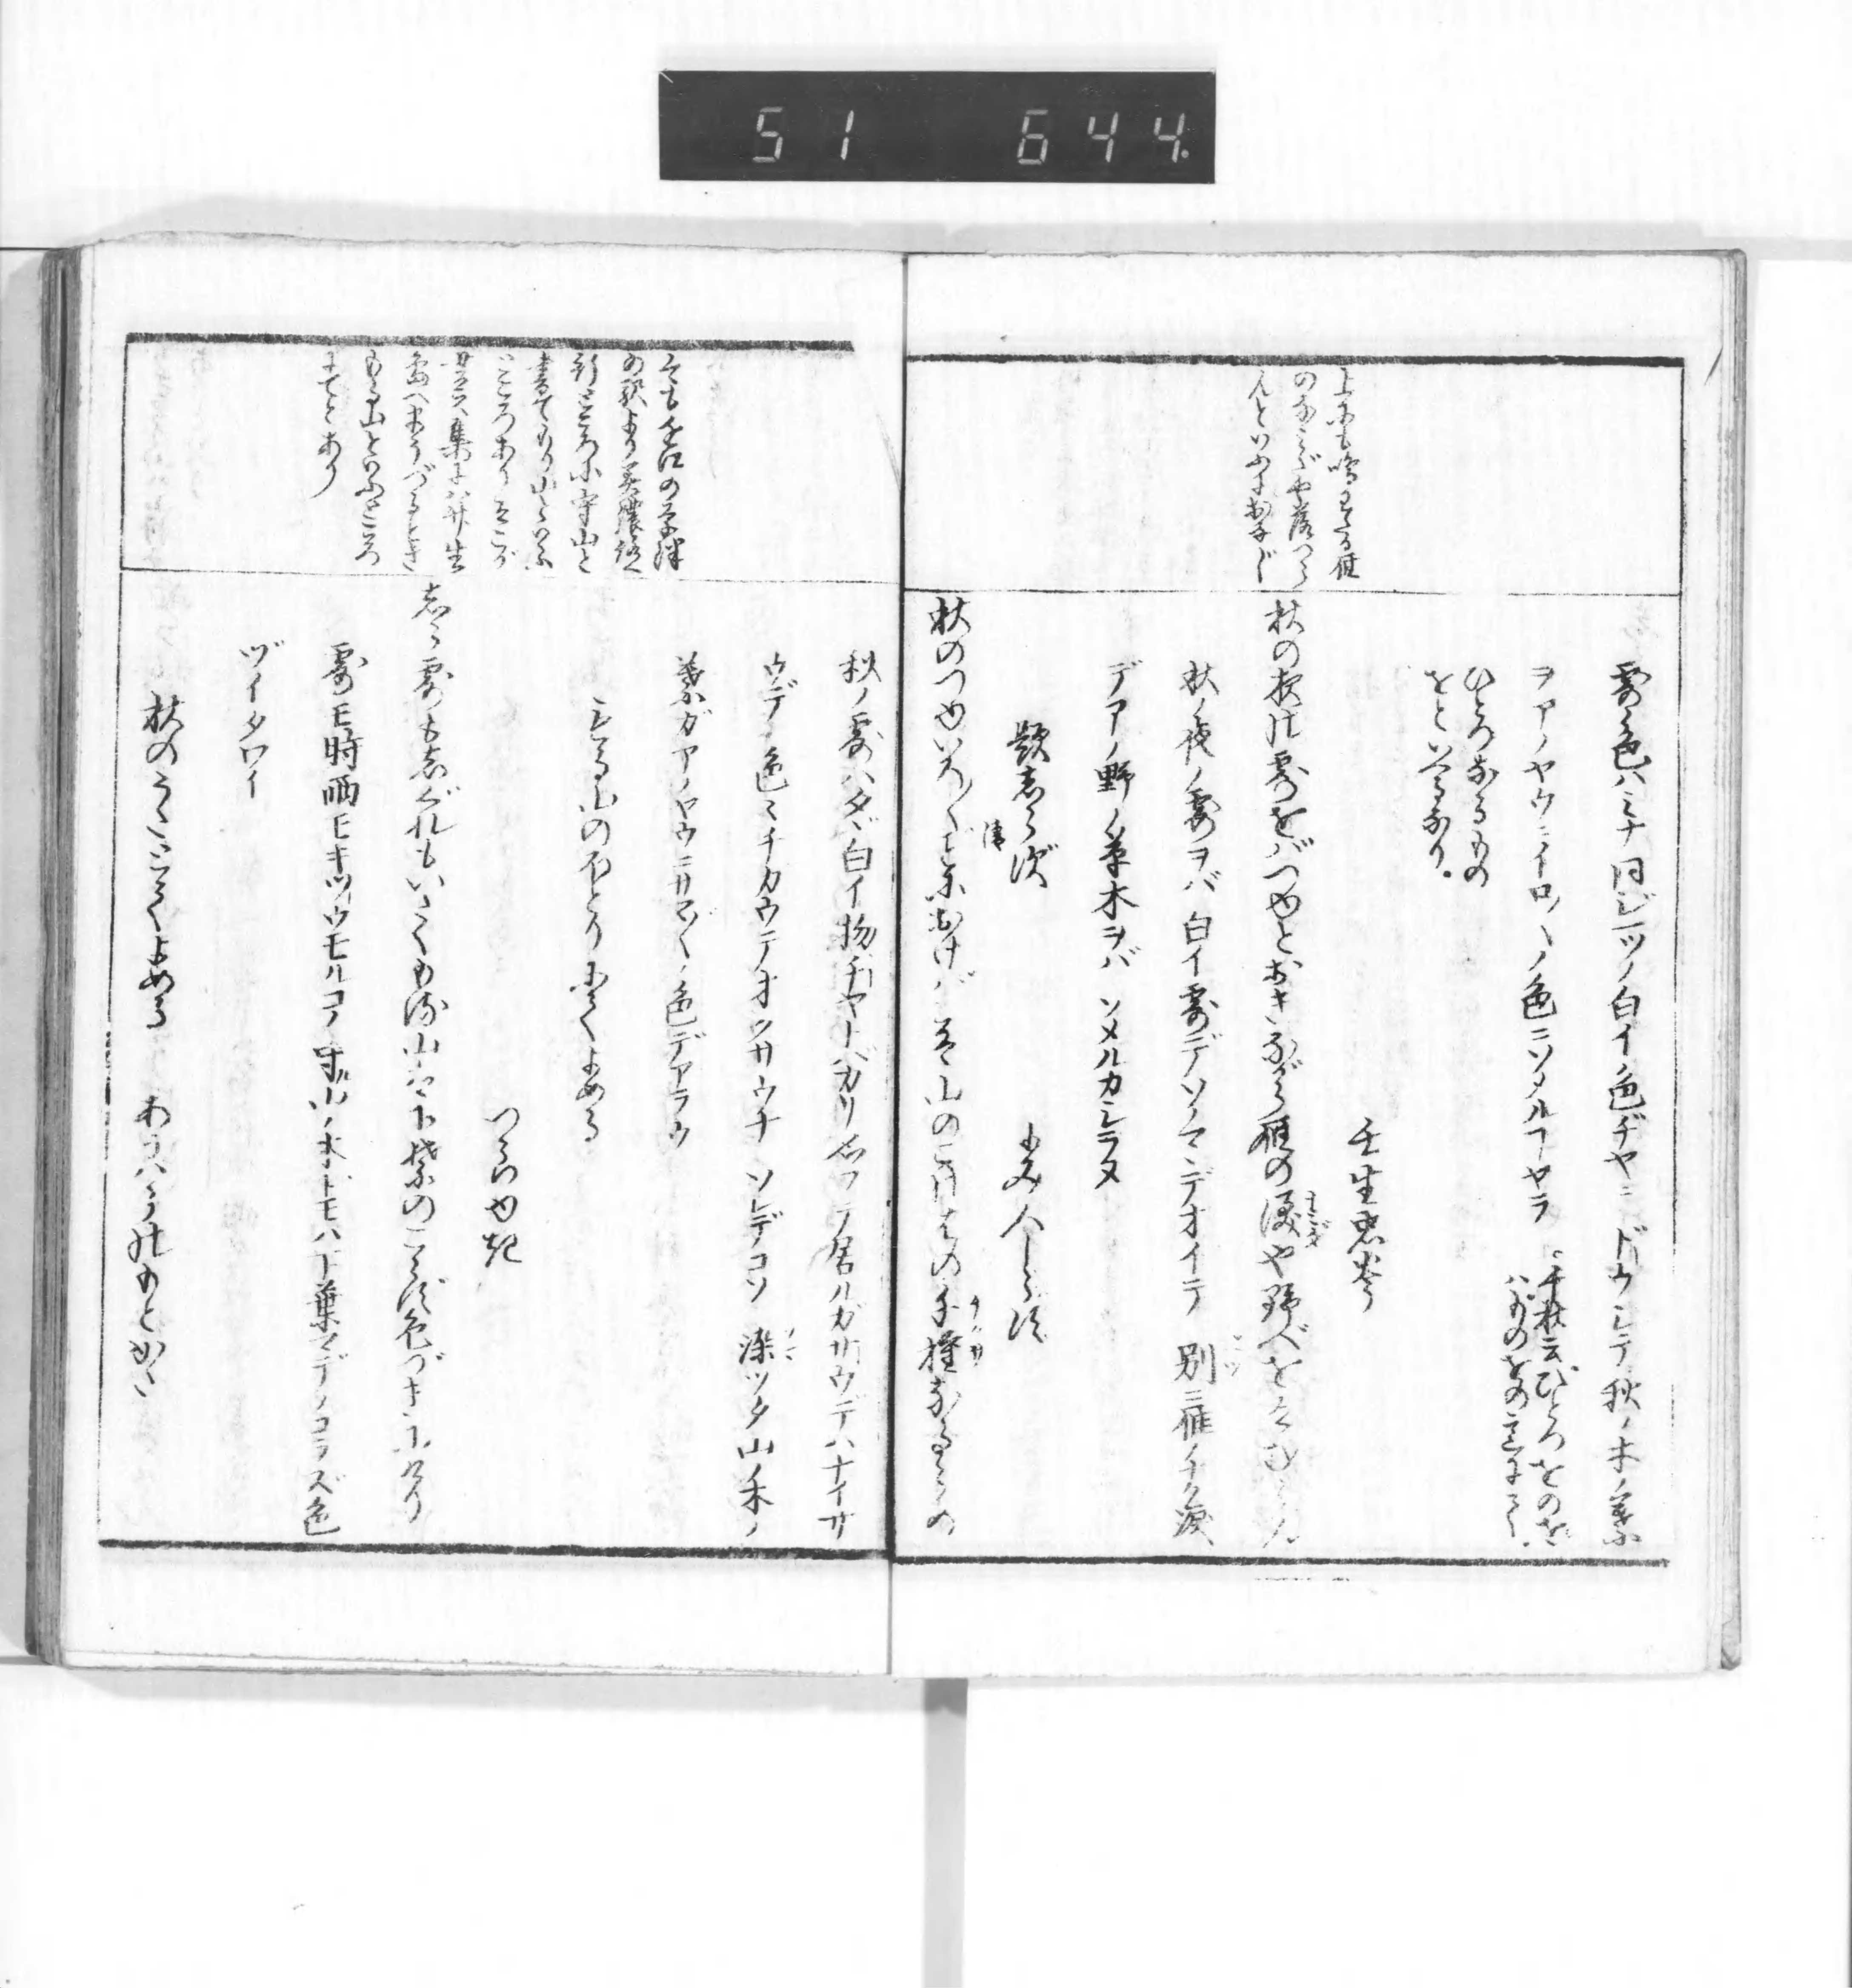 51 644.
上にも鳴わたる雁
のなみだや落つら
んといふにおなじ
露ノ色ハミナ同ジ一ツノ白イ色ヂヤニ ドウシテ秋ノ木ノ葉
ヲアノヤウニイロ〳〵ノ色ニソメルコヤラ
千秋云ひとつをのを
ひとつなるもの
をといへるなり。
壬生忠岑
秋の夜の露をばつゆとおきながら雁の涙や野べをそむらん
秋ノ夜ノ露ヲバ白イ露デソノマヽデオイテ 別ニ雁ノナク涙
デアノ野ノ草木ヲバ ソメルカシラヌ
題しらず
よみ人しらず
秋のつゆいろ〳〵ことにおけばこそ山のこのはの千種なるらめ
秋ノ露ハタヾ白イ物ヂヤトバカリ思フテ居ルガサウデハナイサ
ウデ 色〻チカウテオツサウナ ソレデコソ 染ツタ山ノ木ノ
葉ガアノヤウニサマ〴〵ノ色デアラウ
もる山のほとりにてよめる
つらゆき
しら露も時雨もいたくもる山は下葉のこらず色づきにけり
露モ時雨モキツウモルコノ守山ノ木ドモハ下葉マデノコラズ色
ヅイタワイ
秋のうたとてよめる ありハらのもとかた
そも〳〵近江の草津
の駅より美濃路へ
行ところに守山と
書てもり山といふ
ところありそこか
貫之集にハ竹生
島へまうづるとき
もる山といふところ
にてとあり